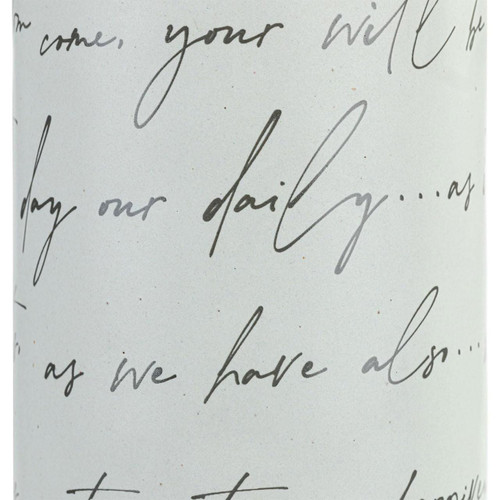 come, your will be
day our daily...as
as we have also...